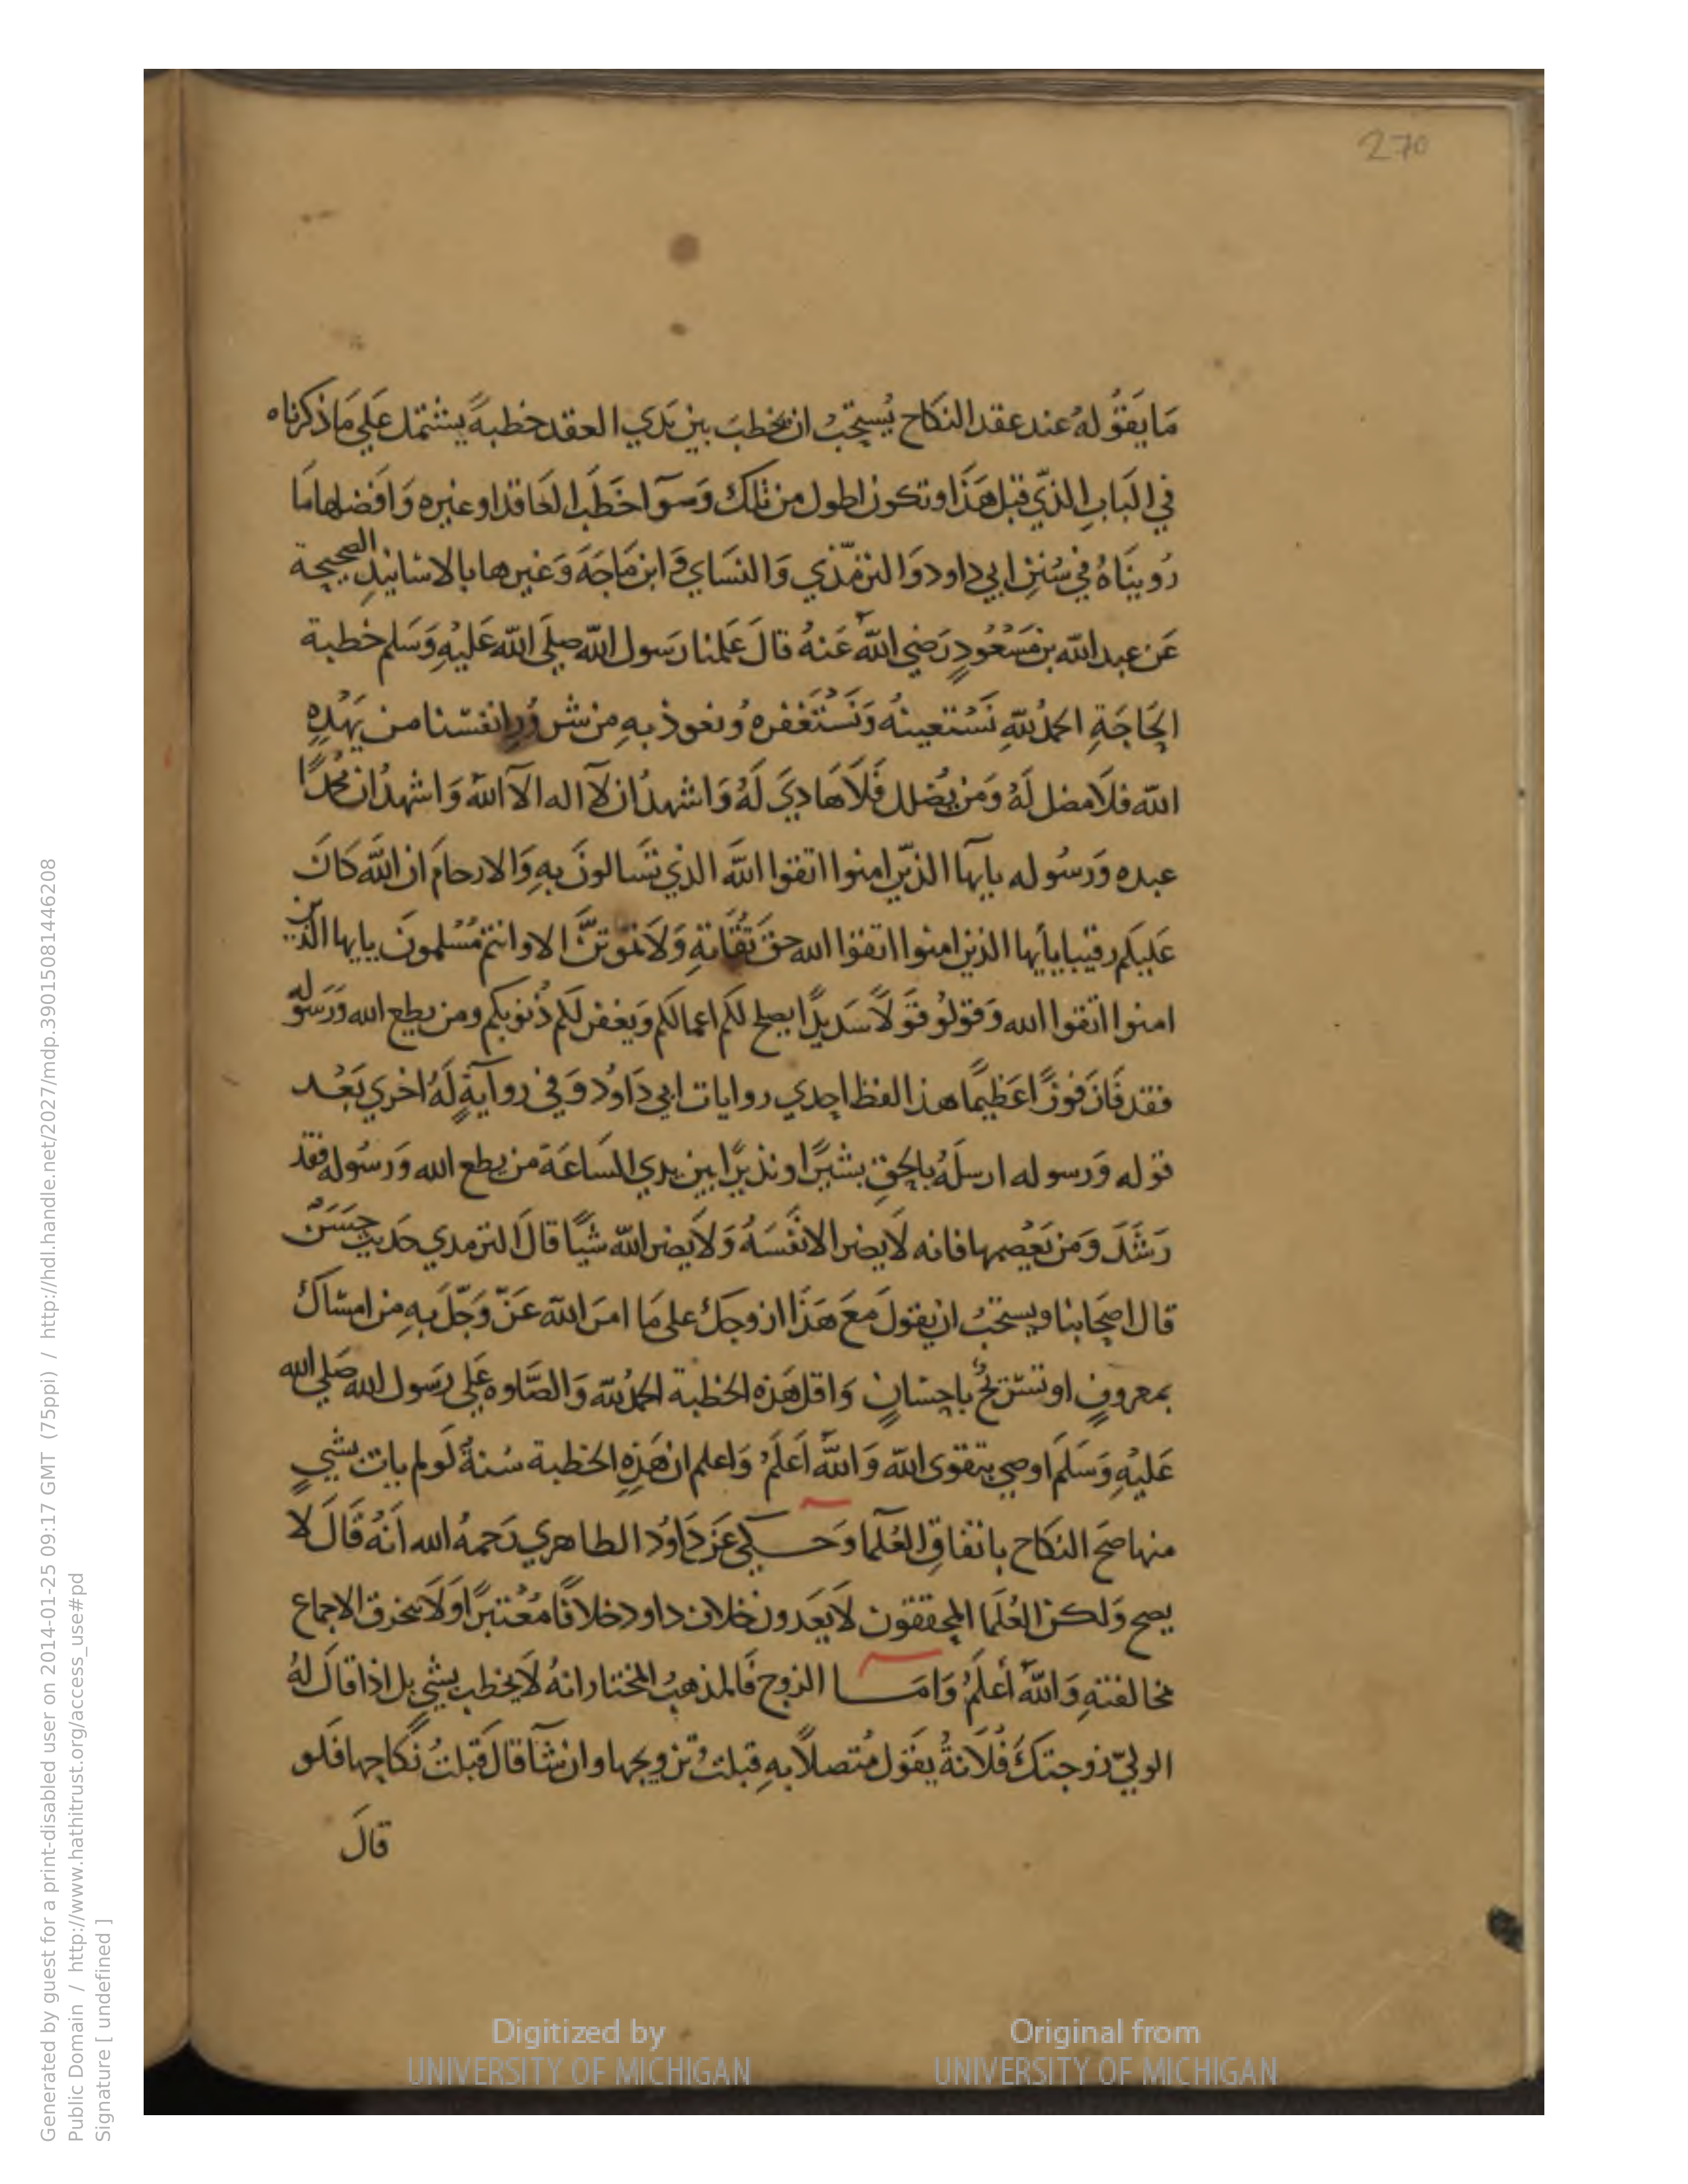 270
مَا يَقُولهُ عند عقد النكَاح يُستحَبُ ان يخطبَ بين يَدي العقد خطبةً يشتمل عَلي مَا ذكرناه
في البَاب الذّي قبل هَذَا وتكون اطول من تلك وَسوآ خَطَب العَاقد او غيره وَافضلها مَا
رُوينَاهُ في سُنَنِ ابي داود وَالترمّذي وَالنسَاي وَابن مَاجَةَ وَغيرها بالاسَانيد الصحيحة
عَن عبد الله بن مَسْعُودٍ رَضي اللّه عَنهُ قالَ عَلمنا رَسول اللّه صلَى اللّه عَليْهِ وَسَلم خطبة
الحَاجَةِ الحمدُ للّهِ نَسْتعينهُ وَنَسْتَغْفره وُنعوذ بهِ من شرُورِ انفسنا من يَهْدِهِ
اللّه فلَا مضل لَهُ وَمَن يُضلل فَلَا هَاديَ لَهُ وَاشهدُ ان لآ اله الآ اللّه وَاشهدُ ان محمدًا
عبده وَرَسُوله يايهَا الذيّن امنوا اتقوا اللّهَ الذي تسَالونَ بهِ وَالارحامَ ان اللّه كانَ
عَليكم رقيبا يأيها الذين امنوا اتقوا الله حق تقَاتهِ وَلَا تموتنَّ الا وانتم مُسْلمونَ يايها الذين
امنوا اتقوا الله وَقولُو قوَلًا سَديدًا يصلح لكم اعمالكم وَيَغفر لكم ذُنوبكم ومن يطع الله وَرَسُوله
فقد فَازَ فوزًا عَظيمًا هذا لفظ احدي روايات ابي دَاوُد وَفي روآيةٍ لَهُ اخري بَعْد
قوله وَرسوله ارسلَهُ بالحقِ بشيرًا ونذيرًا بين يدي السَاعَة من يطع الله وَرسُوله فقد
رَشَدَ وَمَن يَعْصِهما فانه لَا يضر الا نفْسَهُ وَلَا يضر اللّه شيًا قالَ الترمدي حَديث حسَن
قال اصحَابنا ويستحَبُ ان يقولَ معَ هَذَا ازوجكَ على مَا امَرَ اللّه عَزّ وَجّلَ بهِ من امسَاك
بمعروفٍ او تسْريحٌ باحسَانٍ وَاقل هَذه الخطبة الحمدُ للّه وَالصَّلوه عَلي رَسول الله صَلي الله
عَليْهِ وَسَلَم اوصي بتقوى اللّه وَاللّه اَعلَمُ وَاعلم ان هَذِهِ الخطبة سُنةً لَو لم يات بشيٍ
منها صَح النكاح باتفاقِ العُلمآ وَحــكي عَن دَاوُد الطاهري رَحمهُ الله اَنهُ قَالَ لا
يصح وَلكن العُلَما المحققون لَا يَعَدون خلاف داود خلافًا مُعْتبرًا وَلَا ينخرق الاجماع
مخالفتهِ وَاللّه اعلَمُ وَامَــا الزوج فَالمذهبُ المختار انهُ لَا يخطب بشي بل اذا قالَ لهُ
الوليّ زوجتكَ فُلَانةُ يقول مُتصلًا بهِ قبلتُ تزويجها وان شآ قال قَبلتُ نكاحها فلو
قالَ
Generated by guest for a print-disabled user on 2014-01-25 09:17 GMT (75ppi) / http://hdl.handle.net/2027/mdp.39015081446208
Public Domain / http://www.hathitrust.org/access_use#pd
Signature [ undefined ]
Digitized by
UNIVERSITY OF MICHIGAN
Original from
UNIVERSITY OF MICHIGAN